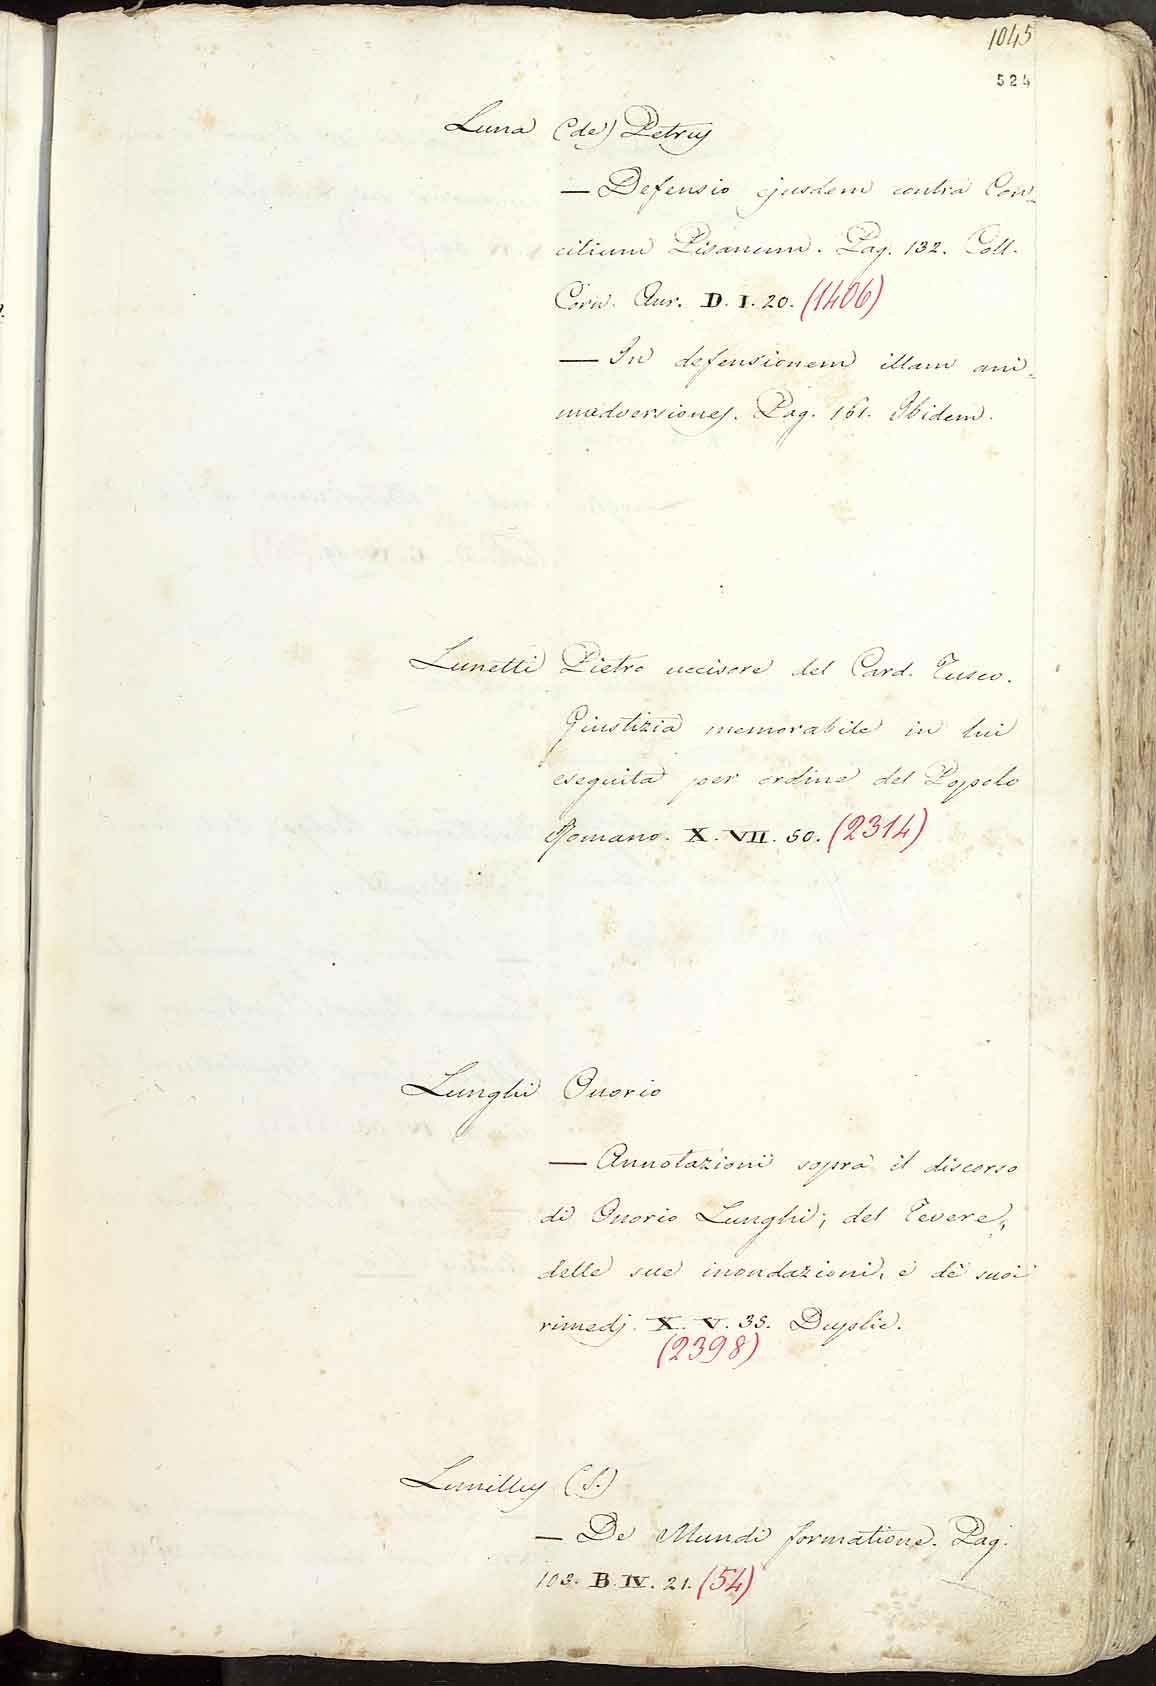 1045
524
Luna (de) Petrus
— Defensio ejusdem contra Con-
cilium Pisanum. Pag. 132. Coll.
Corn. Aur. D. I. 20. (1406)
— In defensionem illam ani-
madversiones. Pag. 161. Ibidem.
Lunetti Pietro uccisore del Card. Tusco.
Giustizia memorabile in lui
eseguita per ordine del Popolo
Romano. X. VII. 50. (2314)
Lunghi Onorio
— Annotazioni sopra il discorso
di Onorio Lunghi, del Tevere,
delle sue inondazioni, e de' suoi
rimedj. X. V. 35. Duplic.
(2398)
(S.)
— De Mundi formatione. Pag.
103. B. IV. 21. (54)